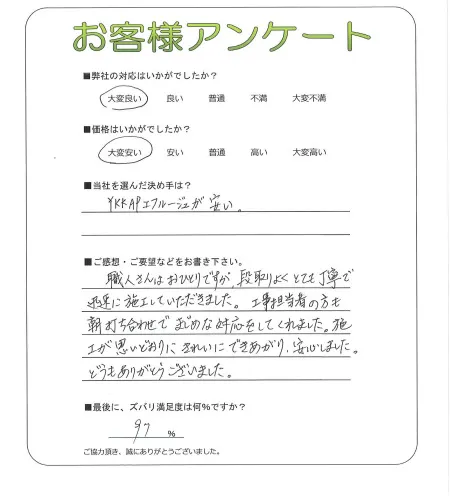 お客様アンケート
■弊社の対応はいかがでしたか？
大変良い 良い 普通 不満 大変不満
■価格はいかがでしたか？
大変安い 安い 普通 高い 大変高い
■当社を選んだ決め手は？
YKKAPエフルージュが安い。
■ご感想・ご要望などをお書き下さい。
職人さんはおひとりですが、段取りよくとても丁寧で
迅速に施工していただきました。工事担当者の方も
朝打ち合わせでまじめな対応をしてくれました。施
工が思いどおりに、きれいにできあがり、安心しました。
どうもありがとうございました。
■最後に、ズバリ満足度は何%ですか？
97 %
ご協力頂き、誠にありがとうございました。